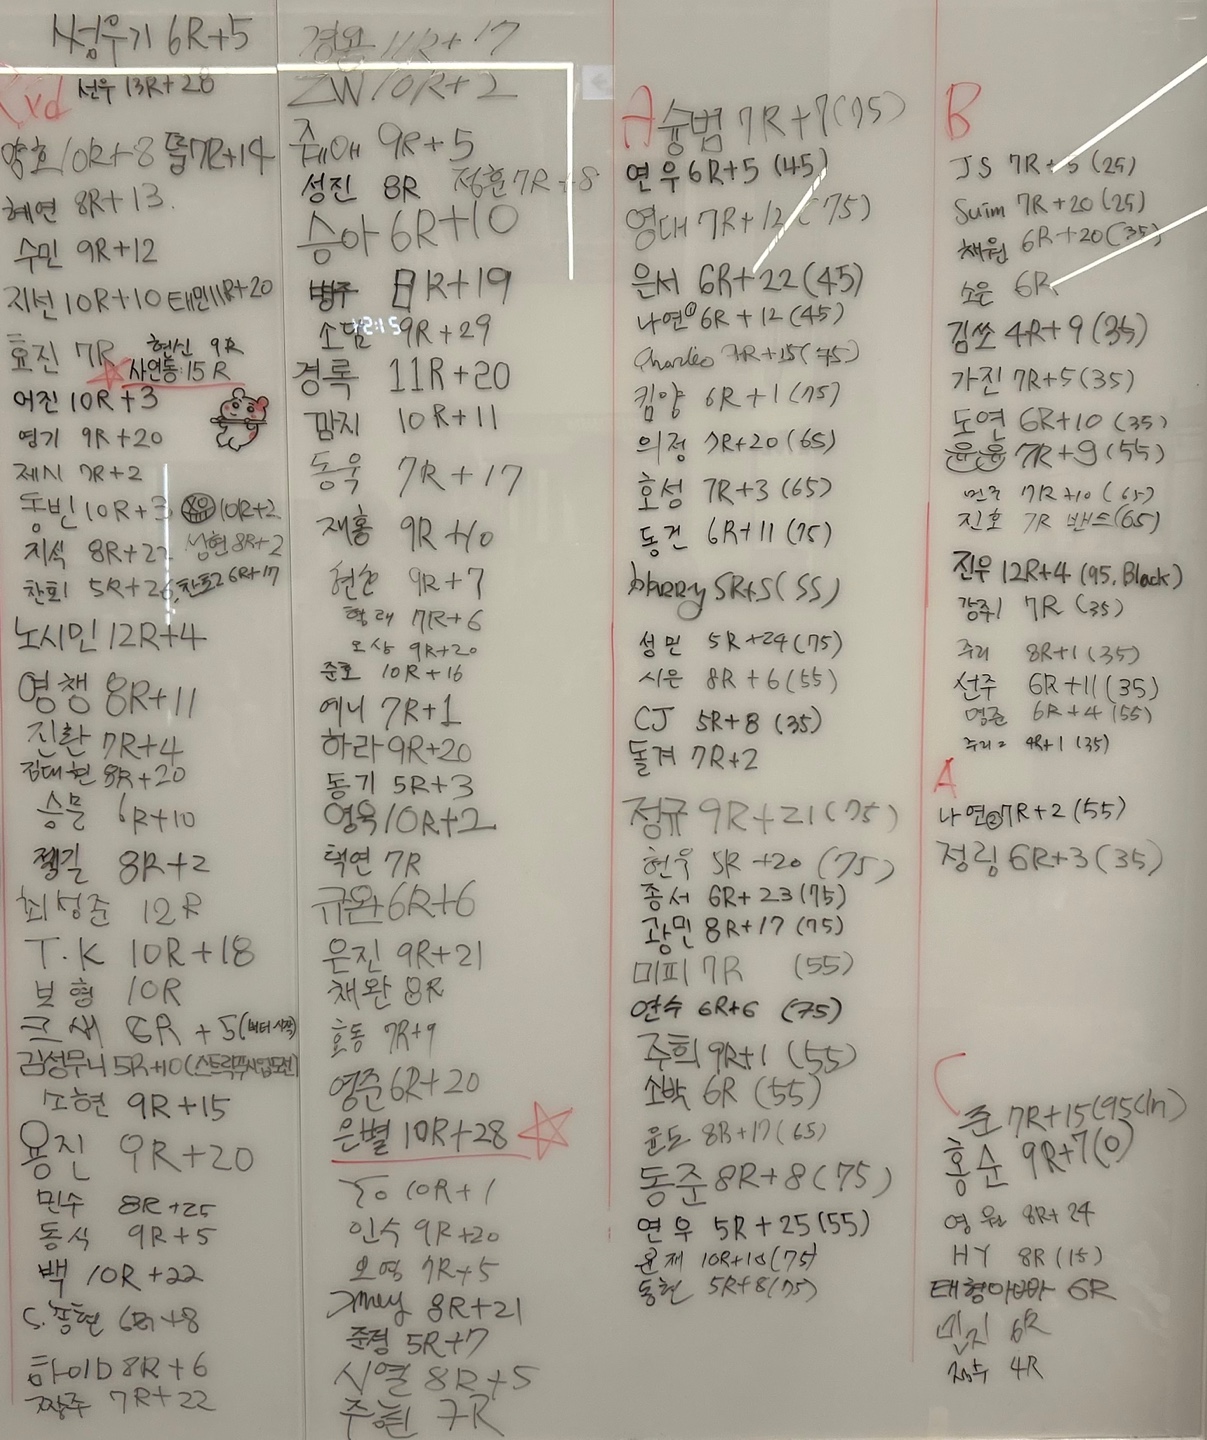 썽우기 6R+5
Rxd 선우 13R+28
양호 10R+8 뚭 7R+14
혜연 8R+13.
수민 9R+12
지선 10R+10 태민 11R+20
효진 7R 현신 9R
사연통:15R
어진 10R+3
영기 9R+20
제시 7R+2
동빈 10R+3 10R+2
지석 8R+22 남현 8R+2
찬희 5R+26, 찬호2 6R+17
노시민 12R+4
영챙 8R+11
진환 7R+4
김대현 8R+20
승문 6R+10
젤길 8R+2
최성준 12R
T.K 10R+18
보형 10R
크새 6R+5(버터시작)
김성무니 5R+10(스트릭무사입도전)
소현 9R+15
용진 9R+20
민수 8R+25
동식 9R+5
백 10R+22
S.종현 6R+8
하이D 8R+6
짱주 7R+22
경완 11R+17
ZW 10R+2
줴애 9R+5
성진 8R 정훈 7R+8
승아 6R+10
병주 8R+19
소담 9R+29
경록 11R+20
깜지 10R+11
동욱 7R+17
재홍 9R+10
현순 9R+7
형래 7R+6
오상 9R+20
준호 10R+16
예니 7R+1
하라 9R+20
동기 5R+3
영욱 10R+2
택연 7R
규완 6R+6
은진 9R+21
채완 8R
효동 7R+9
영준 6R+20
은별 10R+28
Yo 10R+1
인수 9R+20
오영 7R+5
Jmey 8R+21
준경 5R+7
시열 8R+5
주현 7R
A 슝범 7R+7(75)
연우 6R+5 (45)
영대 7R+12 (75)
은서 6R+22 (45)
나연① 6R+12 (45)
Charles 7R+15 (75)
킴양 6R+1 (75)
의정 7R+20 (65)
호성 7R+3 (65)
동건 6R+11 (75)
harry 5R+5 (55)
성민 5R+24 (75)
시은 8R+6 (55)
CJ 5R+8 (35)
돌겨 7R+2
정규 9R+21 (75)
현우 5R+20 (75)
종서 6R+23 (75)
광민 8R+17 (75)
미피 7R (55)
연수 6R+6 (75)
주희 9R+1 (55)
소박 6R (55)
윤도 8R+17 (65)
동준 8R+8 (75)
연우 5R+25 (55)
윤제 10R+10 (75)
동현 5R+8 (75)
B
JS 7R+5 (25)
Suim 7R+20 (25)
채원 6R+20 (35)
소은 6R
김쏘 4R+9 (35)
가진 7R+5 (35)
도연 6R+10 (35)
윤윤 7R+9 (55)
민주 7R+10 (65)
진호 7R 밴드(65)
진우 12R+4 (95, Black)
강주1 7R (35)
주리 8R+1 (35)
선주 6R+11 (35)
명준 6R+4 (55)
주리2 4R+1 (35)
A
나연② 7R+2 (55)
정링 6R+3 (35)
C
준 7R+15 (95cln)
홍순 9R+7(0)
영원 8R+24
HY 8R (15)
태형아빠 6R
민지 6R
정수 4R